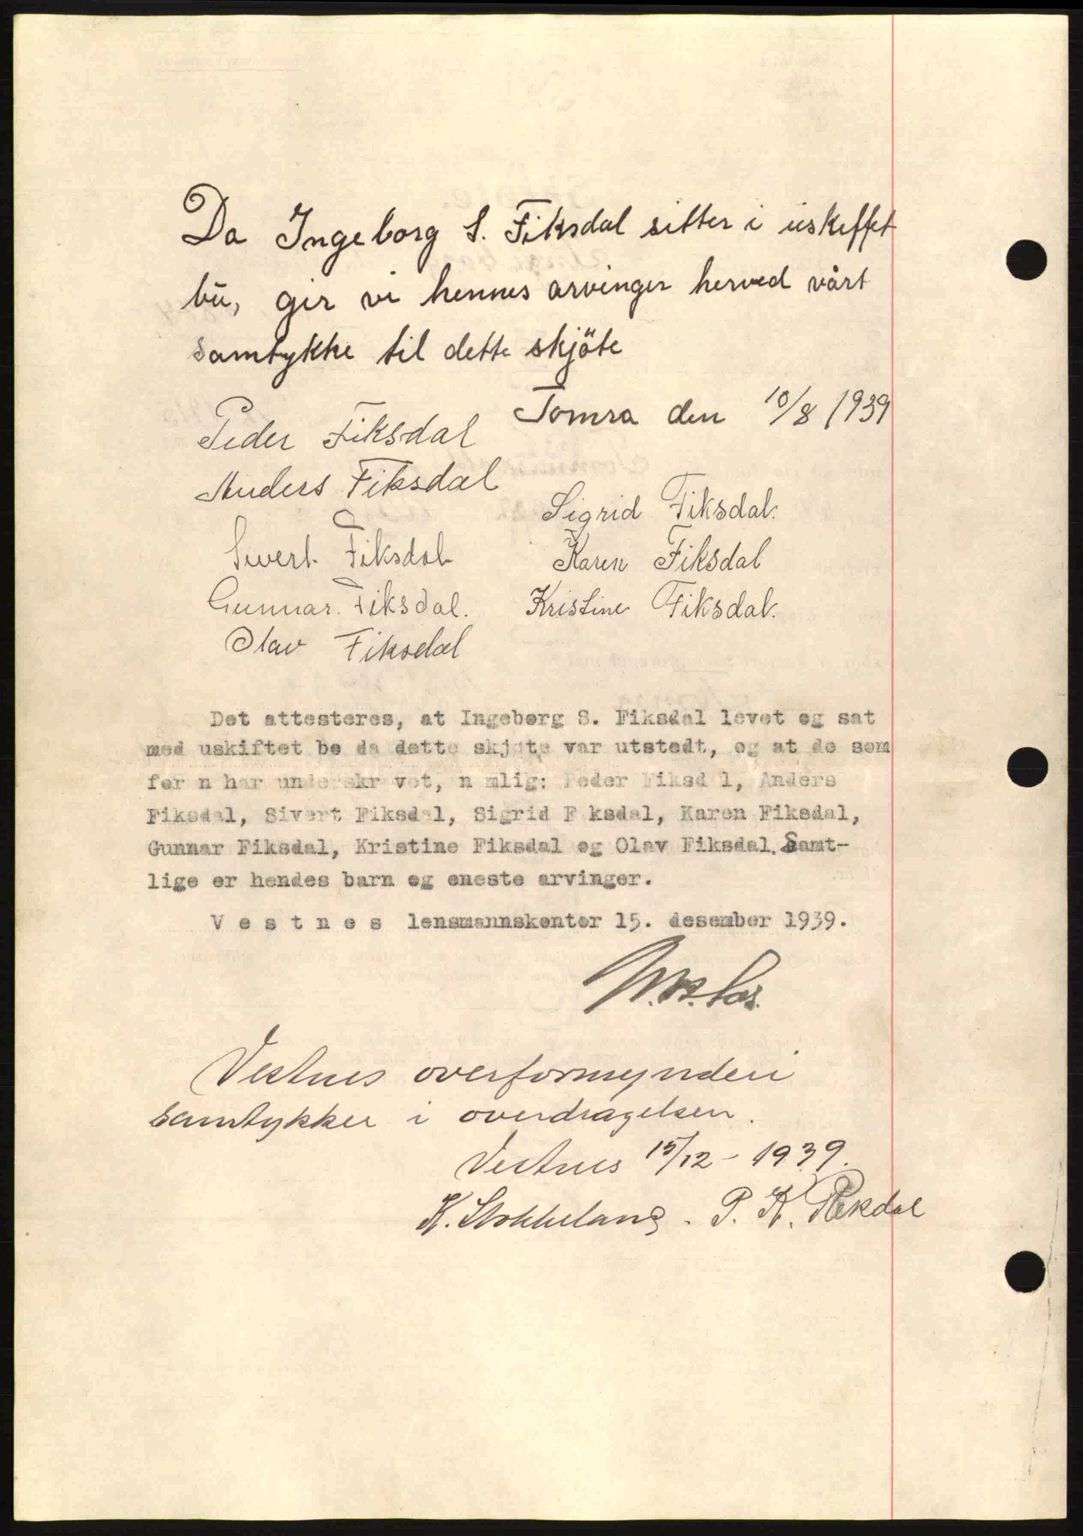 Da Ingeborg S. Fiksdal sitter i uskeffet
bu, gir vi hennes arvinger herved vårt
samtykke til dette skjöte
Tomra den 10/8 1939
Peder Fiksdal
Anders Fiksdal
Sigrid Fiksdal.
Sivert Fiksdal
Karen Fiksdal
Gunnar. Fiksdal.
Kristine Fiksdal.
Olav Fiksdal
Det attesteres, at Ingeberg S. Fiksdal levet eg sat
med uskiftet be da dette skjøte var utstedt, eg at de sem
før n har underskr vet, n mlig: Peder Fiksd l, Anders
Fiksdal, Sivert Fiksdal, Sigrid F ksdal, Karen Fiksdal,
Gunnar Fiksdal, Kristine Fiksdal eg Olav Fiksdal. Samt-
lige er hendes barn eg eneste arvinger.
V e s t n e s lensmannskenter 15. desember 1939.
Vestnes overformynderi
samtykker i overdragelsen.
Vestnes 15/12 - 1939.
K. Stokkeland. P. K. Rekdal